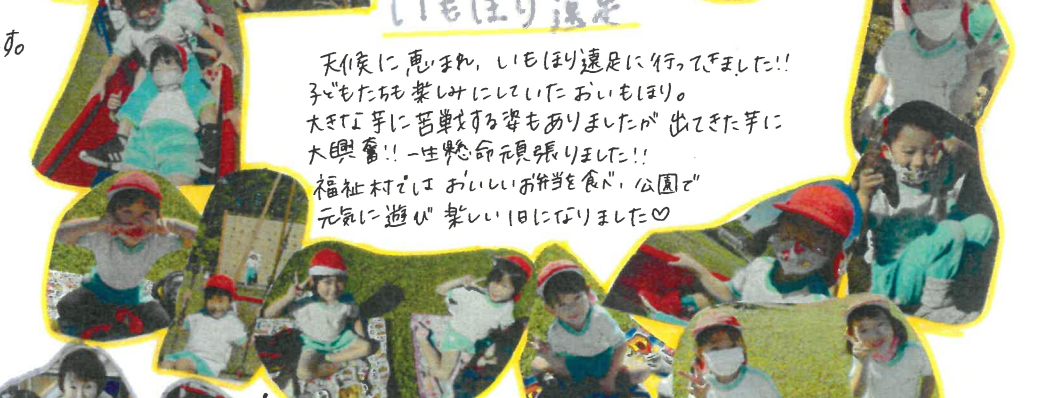 す。
いもほり遠足
天候に恵まれ、いもほり遠足に行ってきました!!
子どもたちも楽しみにしていたおいもほり。
大きな芋に苦戦する姿もありましたが 出てきた芋に
大興奮!! 一生懸命頑張りました!!
福祉村では おいしいお弁当を食べ、公園で
元気に遊び 楽しい1日になりました♡